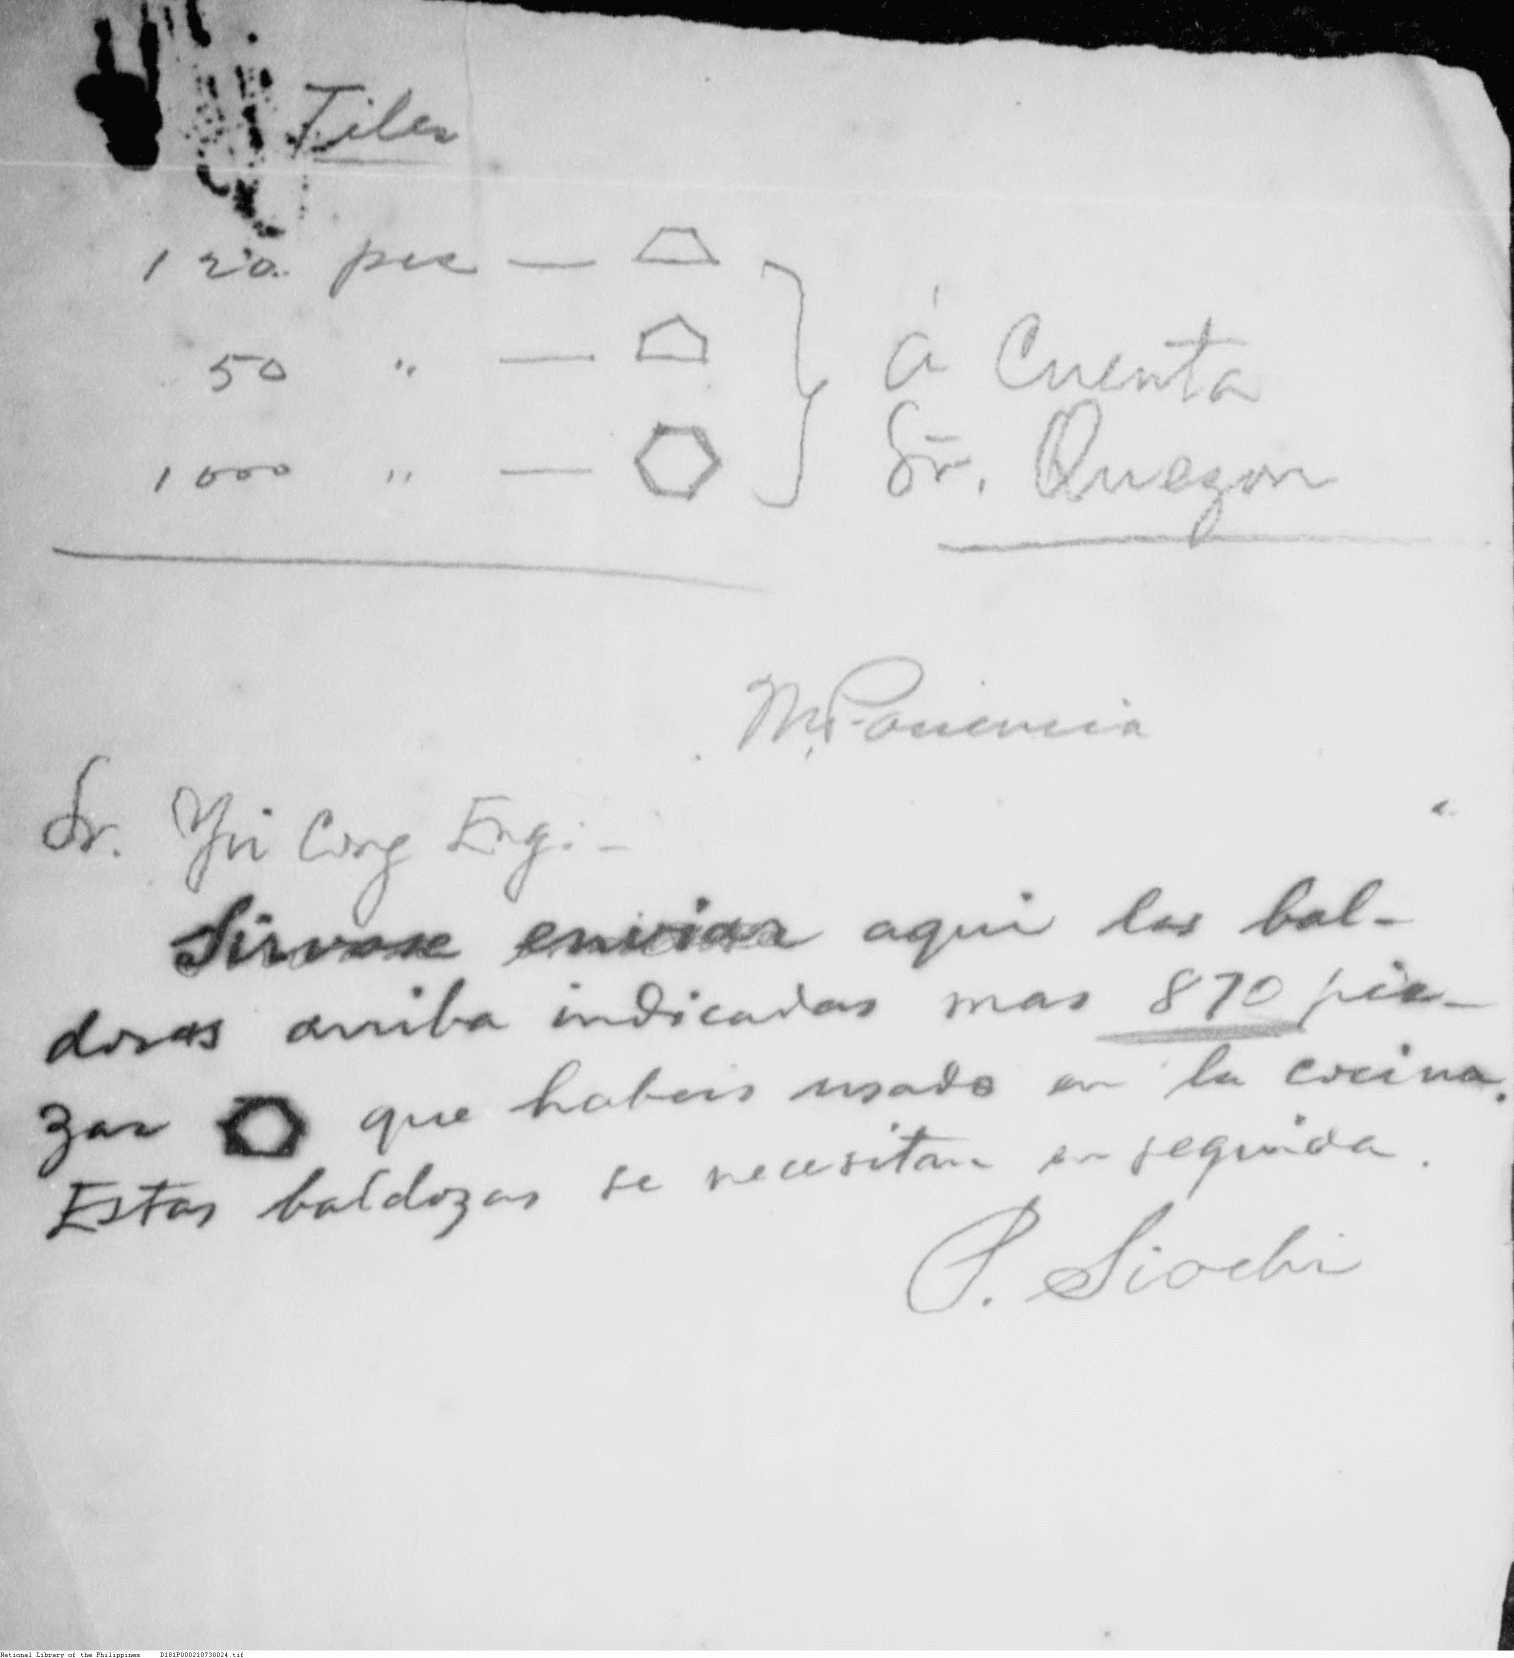 Tiles
120 pcs —
50 " —
1000 " —
á Cuenta
Sr. Quezon
Sr. Yu Cong Eng: —
Sirvase enviar aqui las bal-
dosas arriba indicadas mas 870 pie-
zas que habeis usado en la cocina.
Estas baldozas se necesitan en seguida.
P. Siochi
National Library of the Philippines D181P000210730024.tif